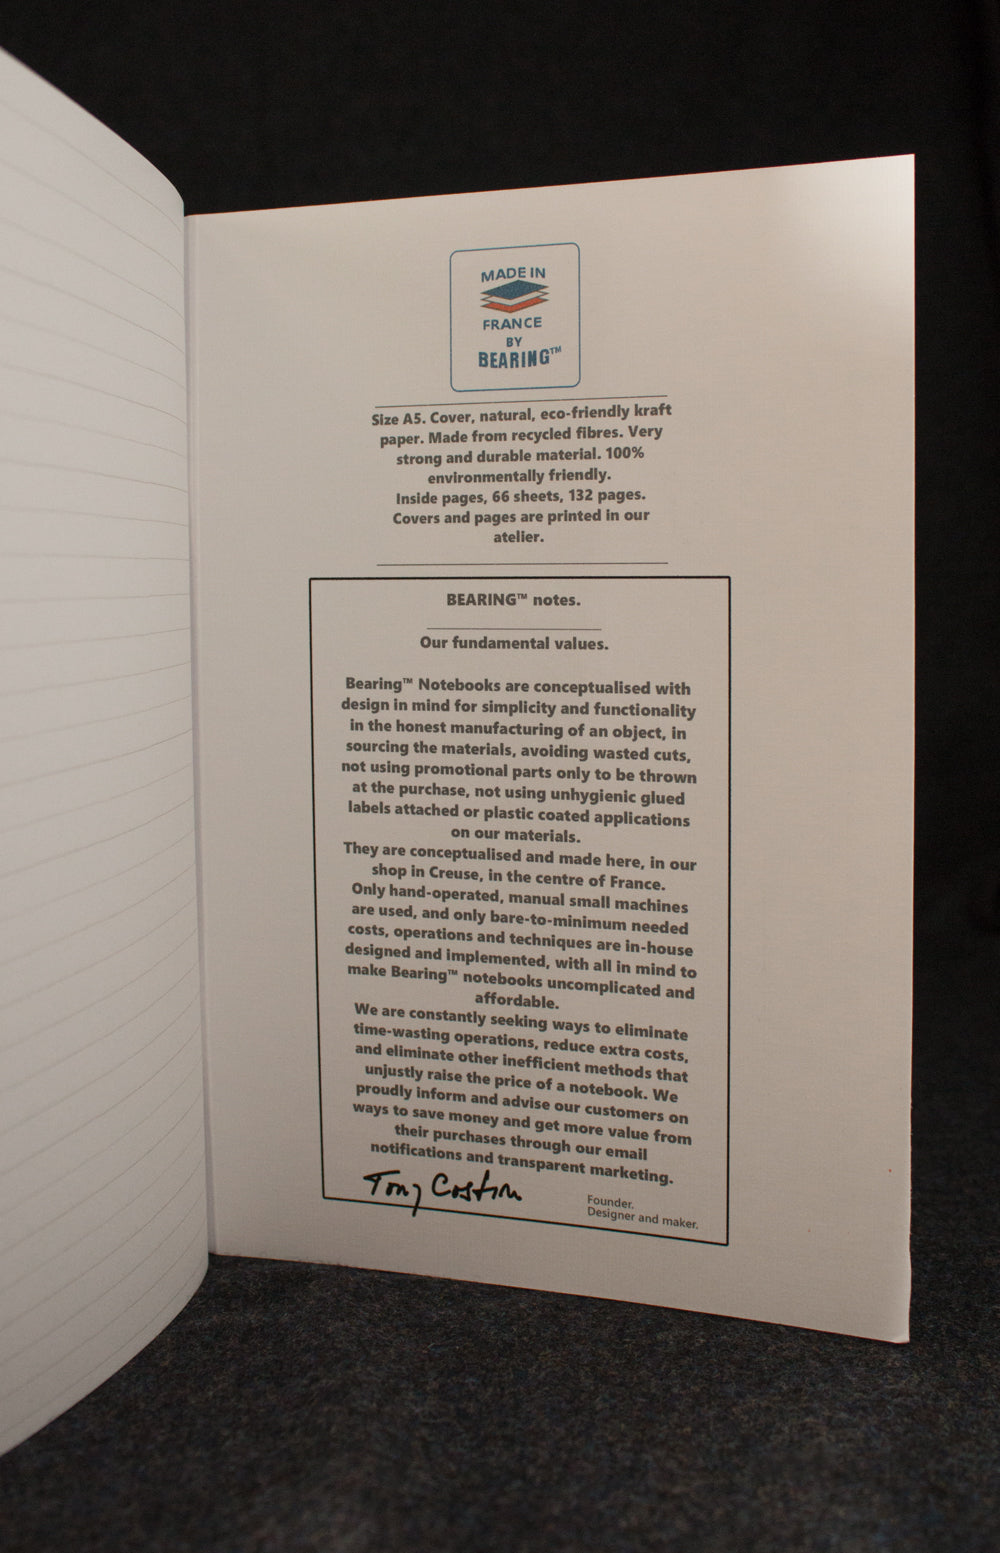 MADE IN
FRANCE
BY
BEARING™
Size A5. Cover, natural, eco-friendly kraft
paper. Made from recycled fibres. Very
strong and durable material. 100%
environmentally friendly.
Inside pages, 66 sheets, 132 pages.
Covers and pages are printed in our
atelier.
BEARING™ notes.
Our fundamental values.
Bearing™ Notebooks are conceptualised with
design in mind for simplicity and functionality
in the honest manufacturing of an object, in
sourcing the materials, avoiding wasted cuts,
not using promotional parts only to be thrown
at the purchase, not using unhygienic glued
labels attached or plastic coated applications
on our materials.
They are conceptualised and made here, in our
shop in Creuse, in the centre of France.
Only hand-operated, manual small machines
are used, and only bare-to-minimum needed
costs, operations and techniques are in-house
designed and implemented, with all in mind to
make Bearing™ notebooks uncomplicated and
affordable.
We are constantly seeking ways to eliminate
time-wasting operations, reduce extra costs,
and eliminate other inefficient methods that
unjustly raise the price of a notebook. We
proudly inform and advise our customers on
ways to save money and get more value from
their purchases through our email
notifications and transparent marketing.
Tony Costin
Founder.
Designer and maker.